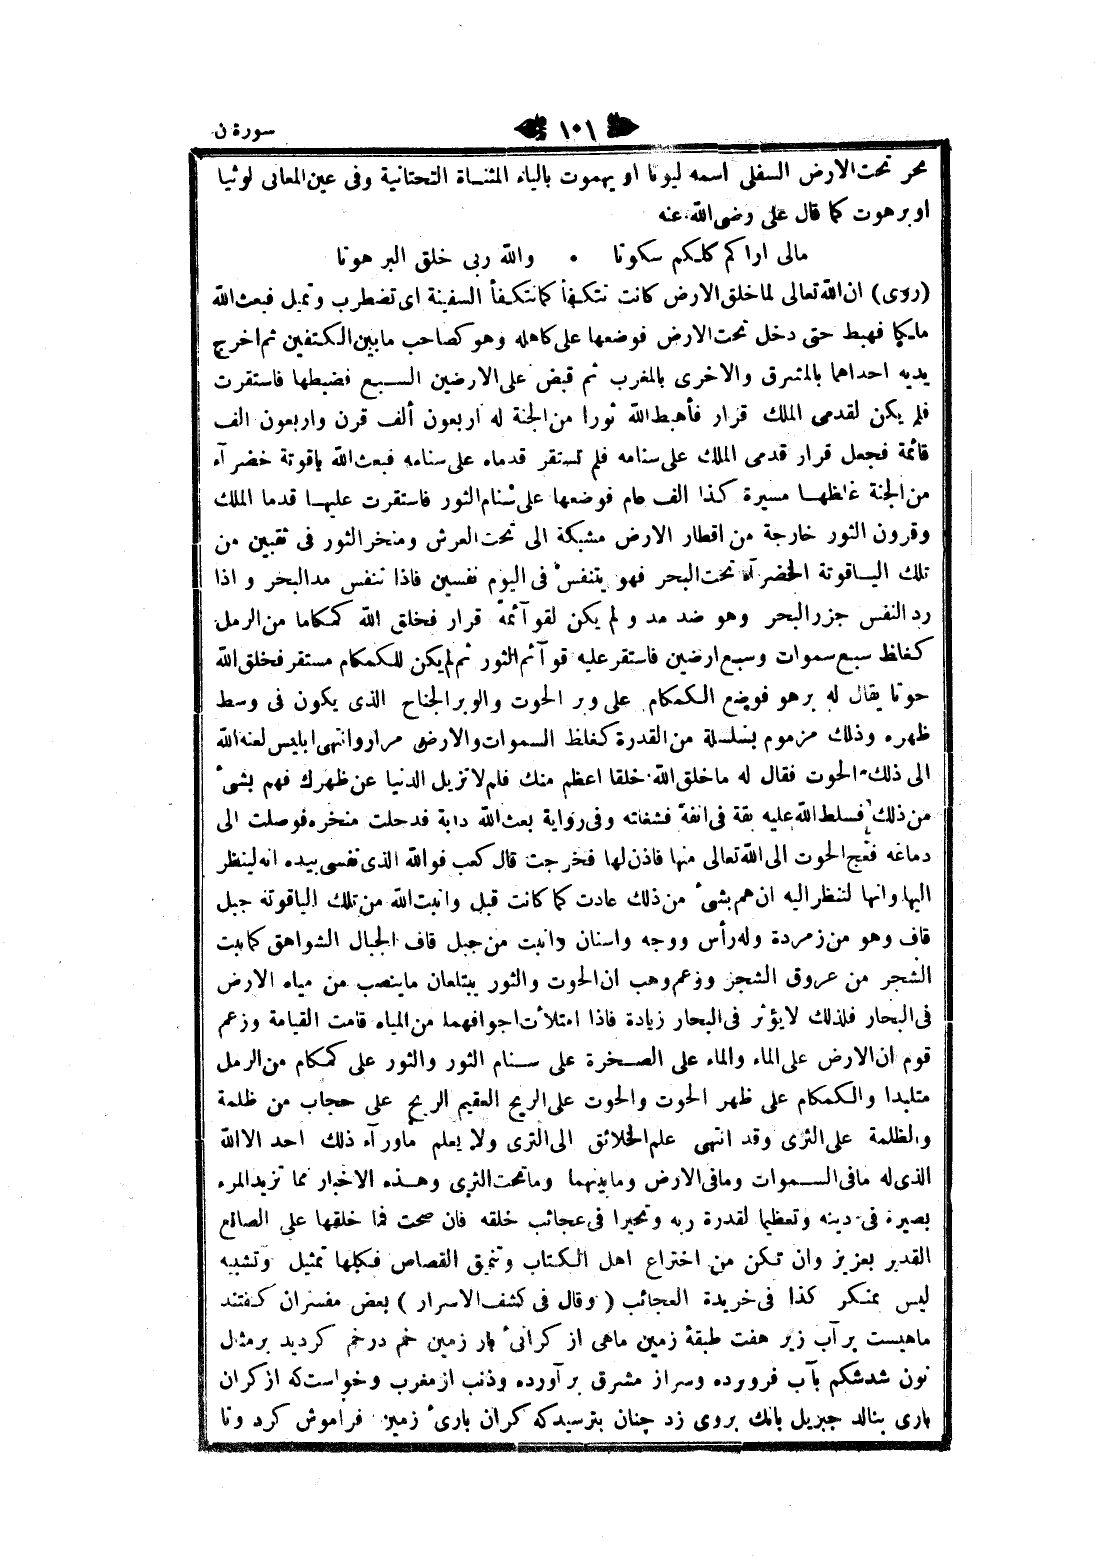 سورة ن
١٠١
بحر تحت الارض السفلى اسمه ليوثا او يهموت بالياء المثناة التحتانية وفى عين المعانى لوثيا
او برهوت كما قال على رضى الله عنه
مالى اراكم كلكم سكوتا • والله ربى خلق البرهوتا
(روى) ان الله تعالى لما خلق الارض كانت تتكفأ كما تتكفأ السفينة اى تضطرب وتميل فبعث الله
ملكا فهبط حتى دخل تحت الارض فوضعها على كاهله وهو كصاحب مابين الكتفين ثم اخرج
يديه احداهما بالمشرق والاخرى بالمغرب ثم قبض على الارضين السبع فضبطها فاستقرت
فلم يكن لقدمى الملك قرار فأهبط الله ثورا من الجنة له اربعون ألف قرن واربعون الف
قائمة فجعل قرار قدمى الملك على سنامه فلم تستقر قدماه على سنامه فبعث الله ياقوتة خضرآء
من الجنة غلظها مسيرة كذا الف عام فوضعها على سنام الثور فاستقرت عليها قدما الملك
وقرون الثور خارجة من اقطار الارض مشبكة الى تحت العرش ومنخر الثور فى ثقبين من
تلك الياقوتة الخضرآء تحت البحر فهو يتنفس فى اليوم نفسين فاذا تنفس مد البحر و اذا
رد النفس جزر البحر وهو ضد مد و لم يكن لقوآئمه قرار فخلق الله كمكاما من الرمل
كغلظ سبع سموات وسبع ارضين فاستقر عليه قوآئم الثور ثم لم يكن للكمكام مستقر فخلق الله
حوتا يقال له برهو فوضع الكمكام على وبر الحوت والوبر الجناح الذى يكون فى وسط
ظهره وذلك مزموم بسلسلة من القدرة كغلظ السموات والارض مرارا وانتهى ابليس لعنه الله
الى ذلك الحوت فقال له ماخلق الله خلقا اعظم منك فلم لا تزيل الدنيا عن ظهرك فهم بشىء
من ذلك فسلط الله عليه بقة فى انفه فشغلته وفى رواية بعث الله دابة فدخلت منخره فوصلت الى
دماغه فعج الحوت الى الله تعالى منها فاذن لها فخرجت قال كعب فوالله الذى نفسى بيده انه لينظر
اليها وانها لتنظر اليه ان هم بشىء من ذلك عادت كما كانت قبل وانبت الله من تلك الياقوتة جبل
قاف وهو من زمردة وله رأس ووجه واسنان وانبت من جبل قاف الجبال الشواهق كما نبت
الشجر من عروق الشجر وزعم وهب ان الحوت والثور يبتلعان ماينصب من مياه الارض
فى البحار فلذلك لايؤثر فى البحار زيادة فاذا امتلأت اجوافهما من المياه قامت القيامة وزعم
قوم ان الارض على الماء والماء على الصخرة على سنام الثور والثور على كمكام من الرمل
متلبدا والكمكام على ظهر الحوت والحوت على الريح العقيم الريح على حجاب من ظلمة
والظلمة على الثرى وقد انتهى علم الخلائق الى الثرى ولا يعلم ماورآء ذلك احد الا الله
الذى له مافى السموات ومافى الارض ومابينهما وماتحت الثرى وهذه الاخبار مما تزيد المرء
بصيرة فى دينه وتعظيما لقدرة ربه وتحيرا فى عجائب خلقه فان صحت فما خلقها على الصانع
القدير بعزيز وان تكن من اختراع اهل الكتاب وتنميق القصاص فكلها تمثيل وتشبيه
ليس بمنكر كذا فى خريدة العجائب (وقال فى كشف الاسرار) بعض مفسران كفتند
ماهيست بر آب زير هفت طبقۀ زمين ماهى از كرانىء بار زمين خم درخم كرديد بر مثال
نون شد شكم بآب فرو برده وسر از مشرق بر آورده وذنب از مغرب وخواست كه از كران
بارى بنالد جبريل بانك بروى زد چنان بترسيد كه كران بارىء زمين فراموش كرد وتا